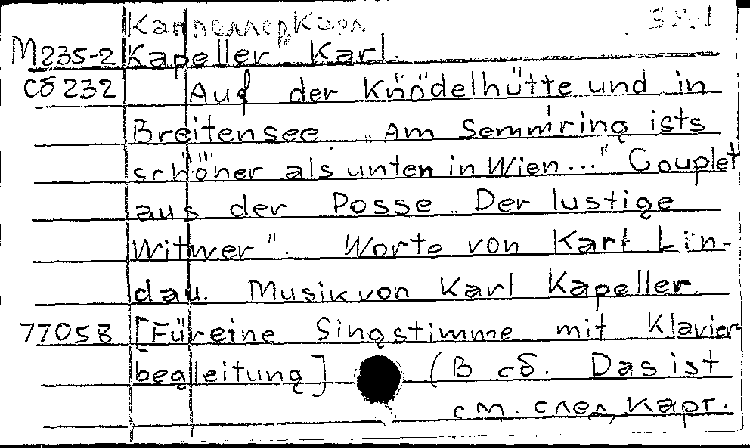 Каппеллер Карл 38.1
М235-2 Kapeller" Karl.
сб 232 Auf der Knödelhütte und in
Breitensee „Am Semmring ists
schöner als unten in Wien..." Couplet
aus der Posse „Der lustige
Witwer". Worte von Karl Lin-
dau. Musik von Karl Kapeller.
77058 [Für eine Singstimme mit Klavier-
begleitung] (В сб. Das ist
см. след. карт.